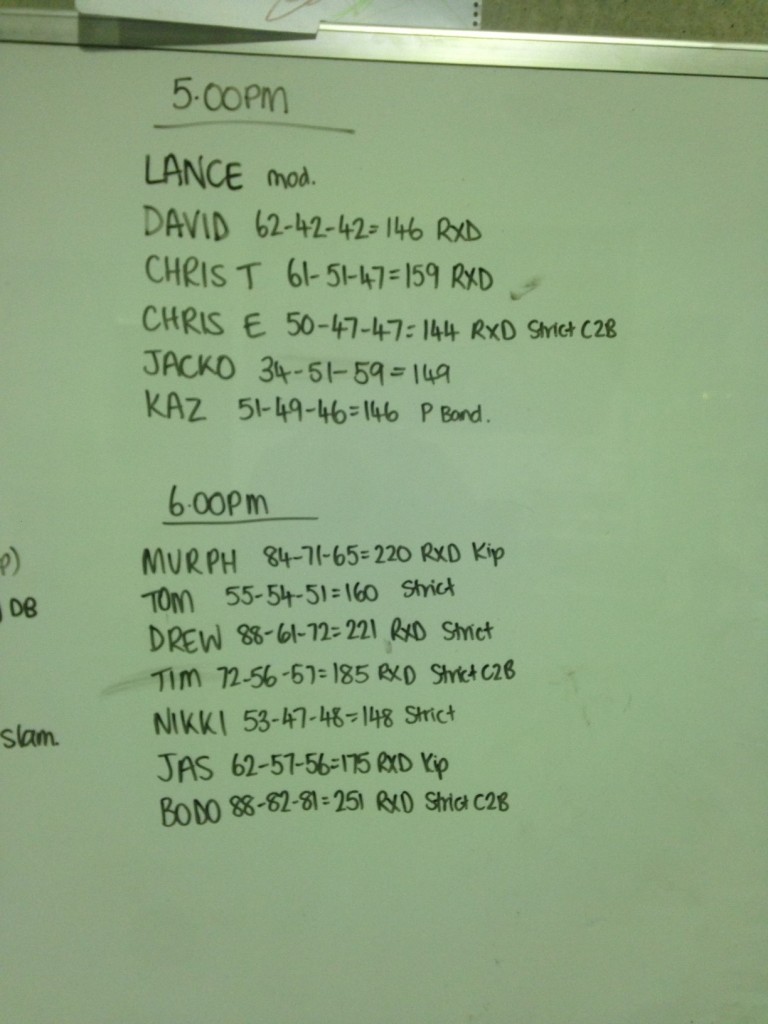 5.00PM
LANCE mod.
DAVID 62-42-42=146 RXD
CHRIS T 61-51-47=159 RXD
CHRIS E 50-47-47=144 RXD Strict C2B
JACKO 34-51-59=149
KAZ 51-49-46=146 P Band.
6.00pm
MURPH 84-71-65=220 RXD Kip
TOM 55-54-51=160 Strict
DREW 88-61-72=221 RXD Strict
TIM 72-56-57=185 RXD Strict C2B
NIKKI 53-47-48=148 Strict
JAS 62-57-56=175 RXD Kip
BODO 88-82-81=251 RXD Strict C2B
p)
DB
slam.